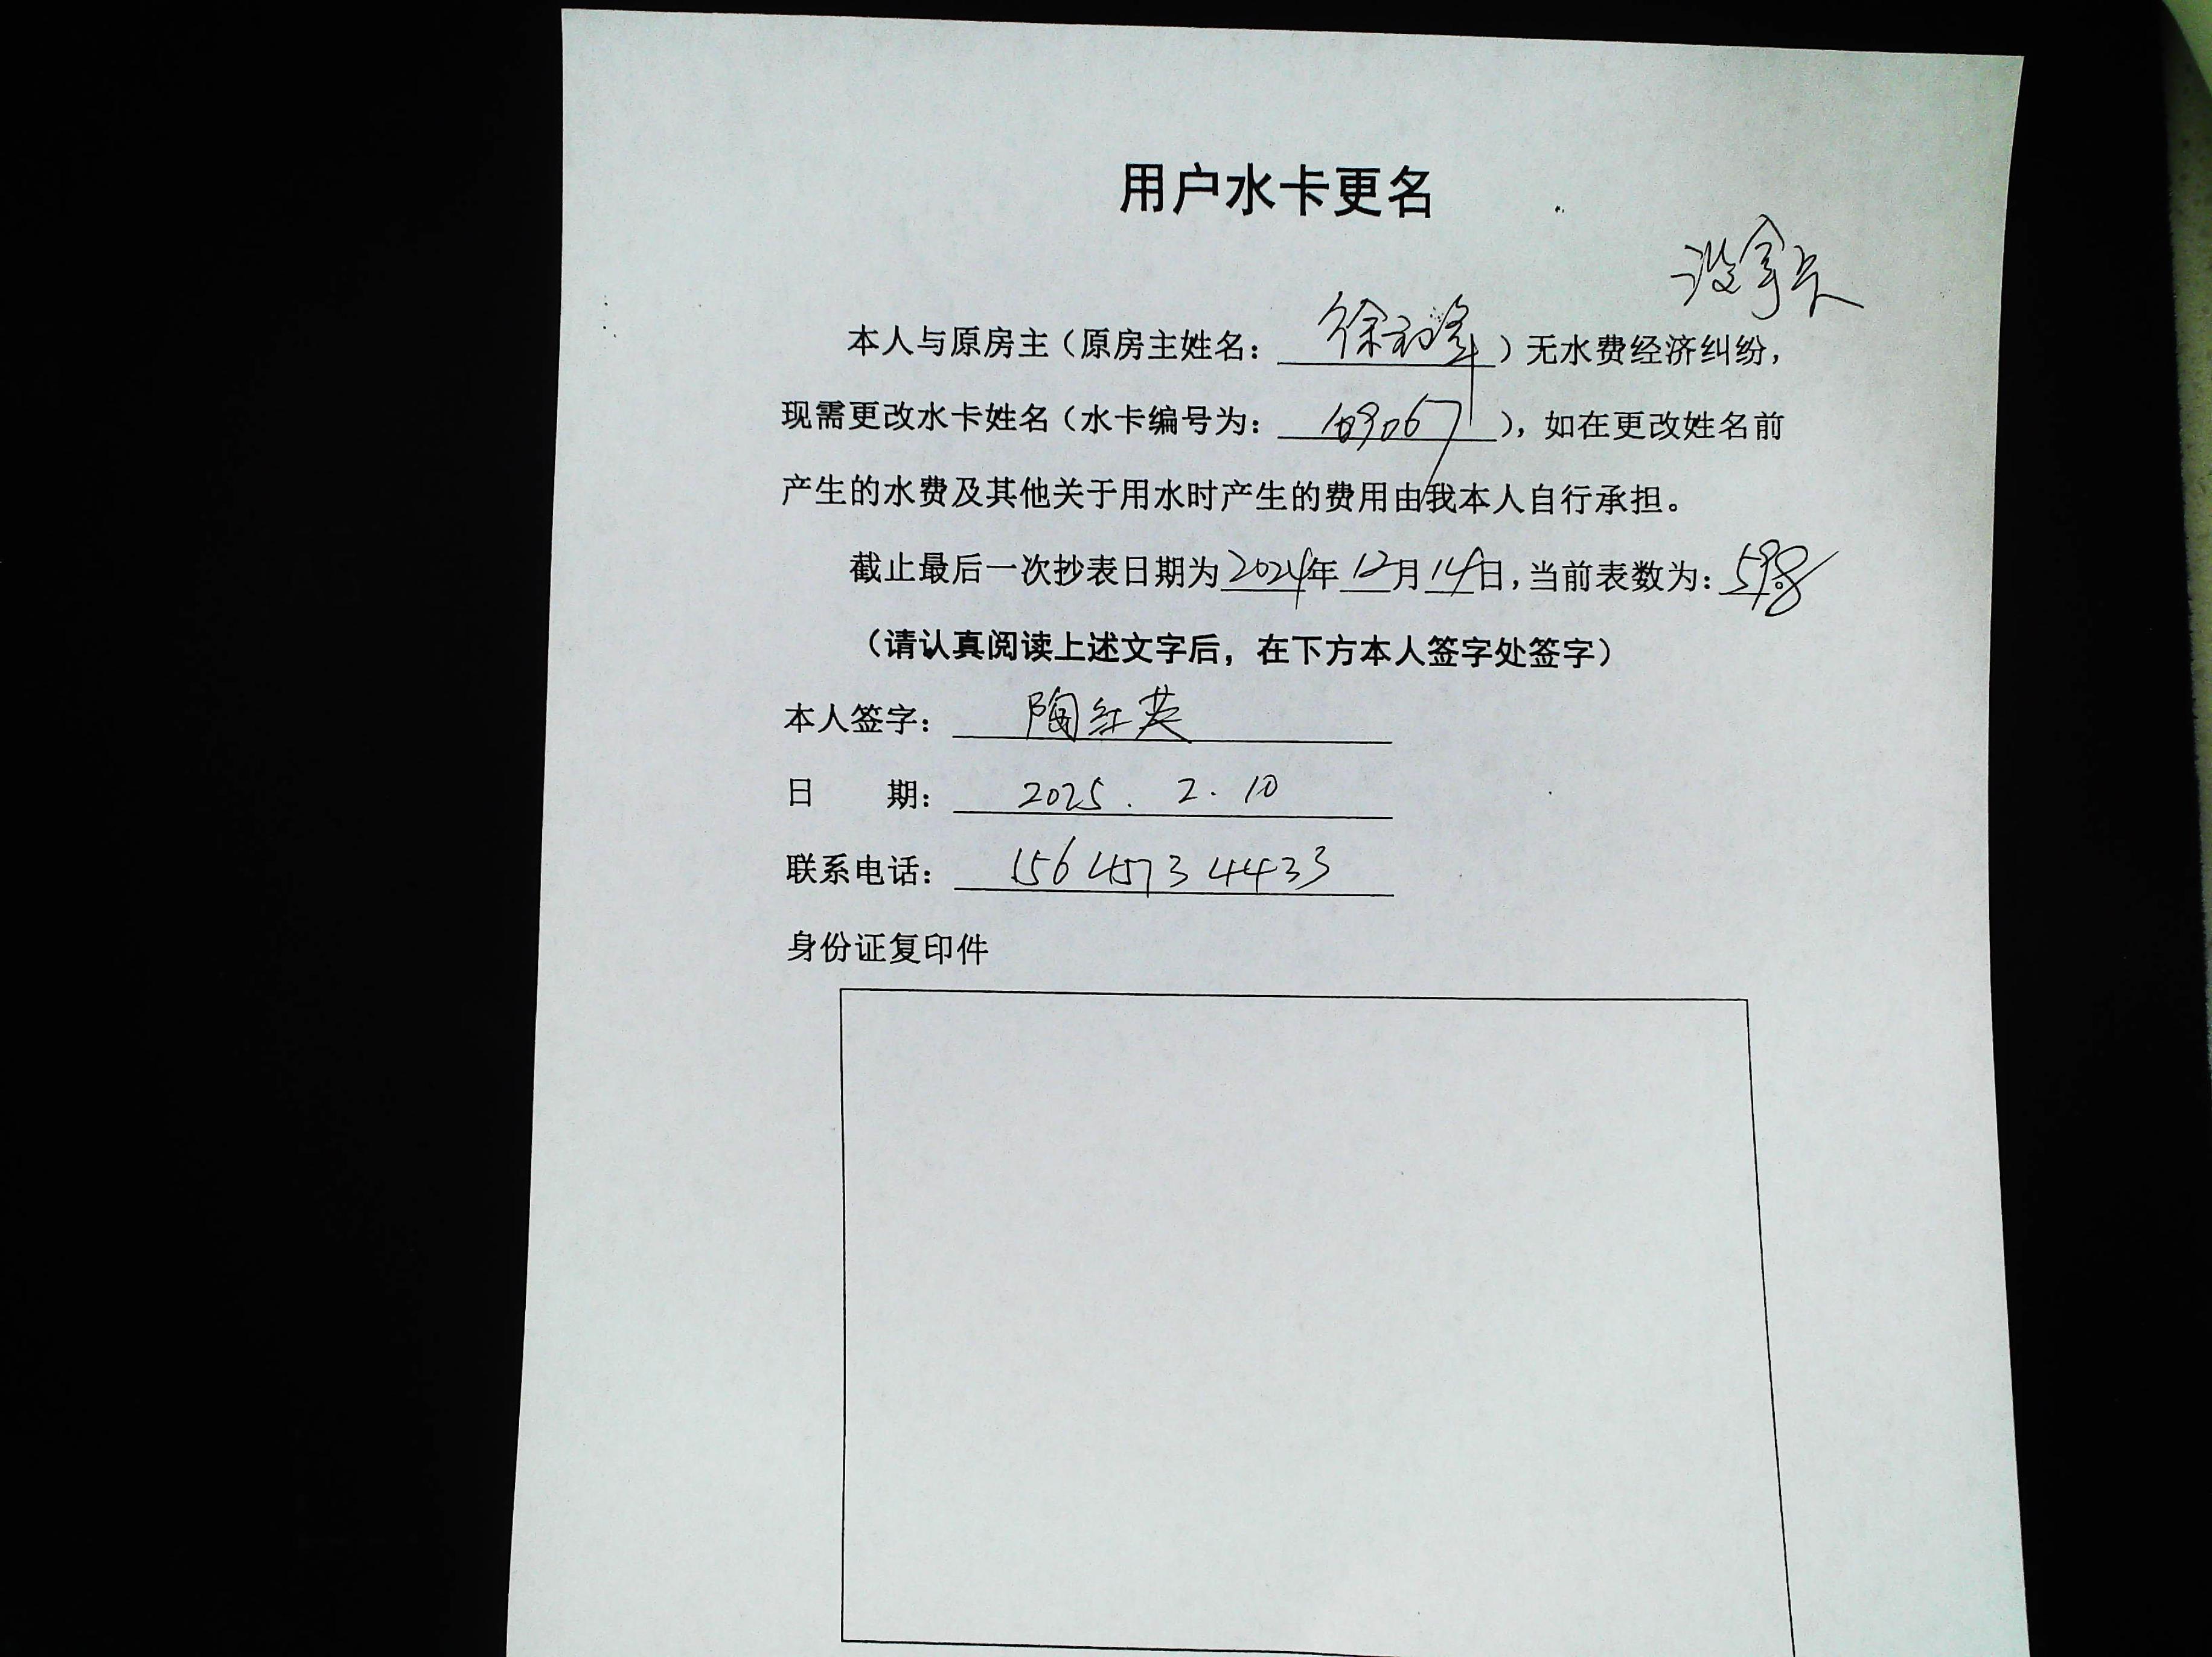 用户水卡更名
没拿卡
本人与原房主（原房主姓名：徐 峰）无水费经济纠纷，
现需更改水卡姓名（水卡编号为：109067），如在更改姓名前
产生的水费及其他关于用水时产生的费用由我本人自行承担。
截止最后一次抄表日期为2024年12月14日，当前表数为：598
（请认真阅读上述文字后，在下方本人签字处签字）
本人签字：陶红英
日 期：2025.2.10
联系电话：15645734433
身份证复印件